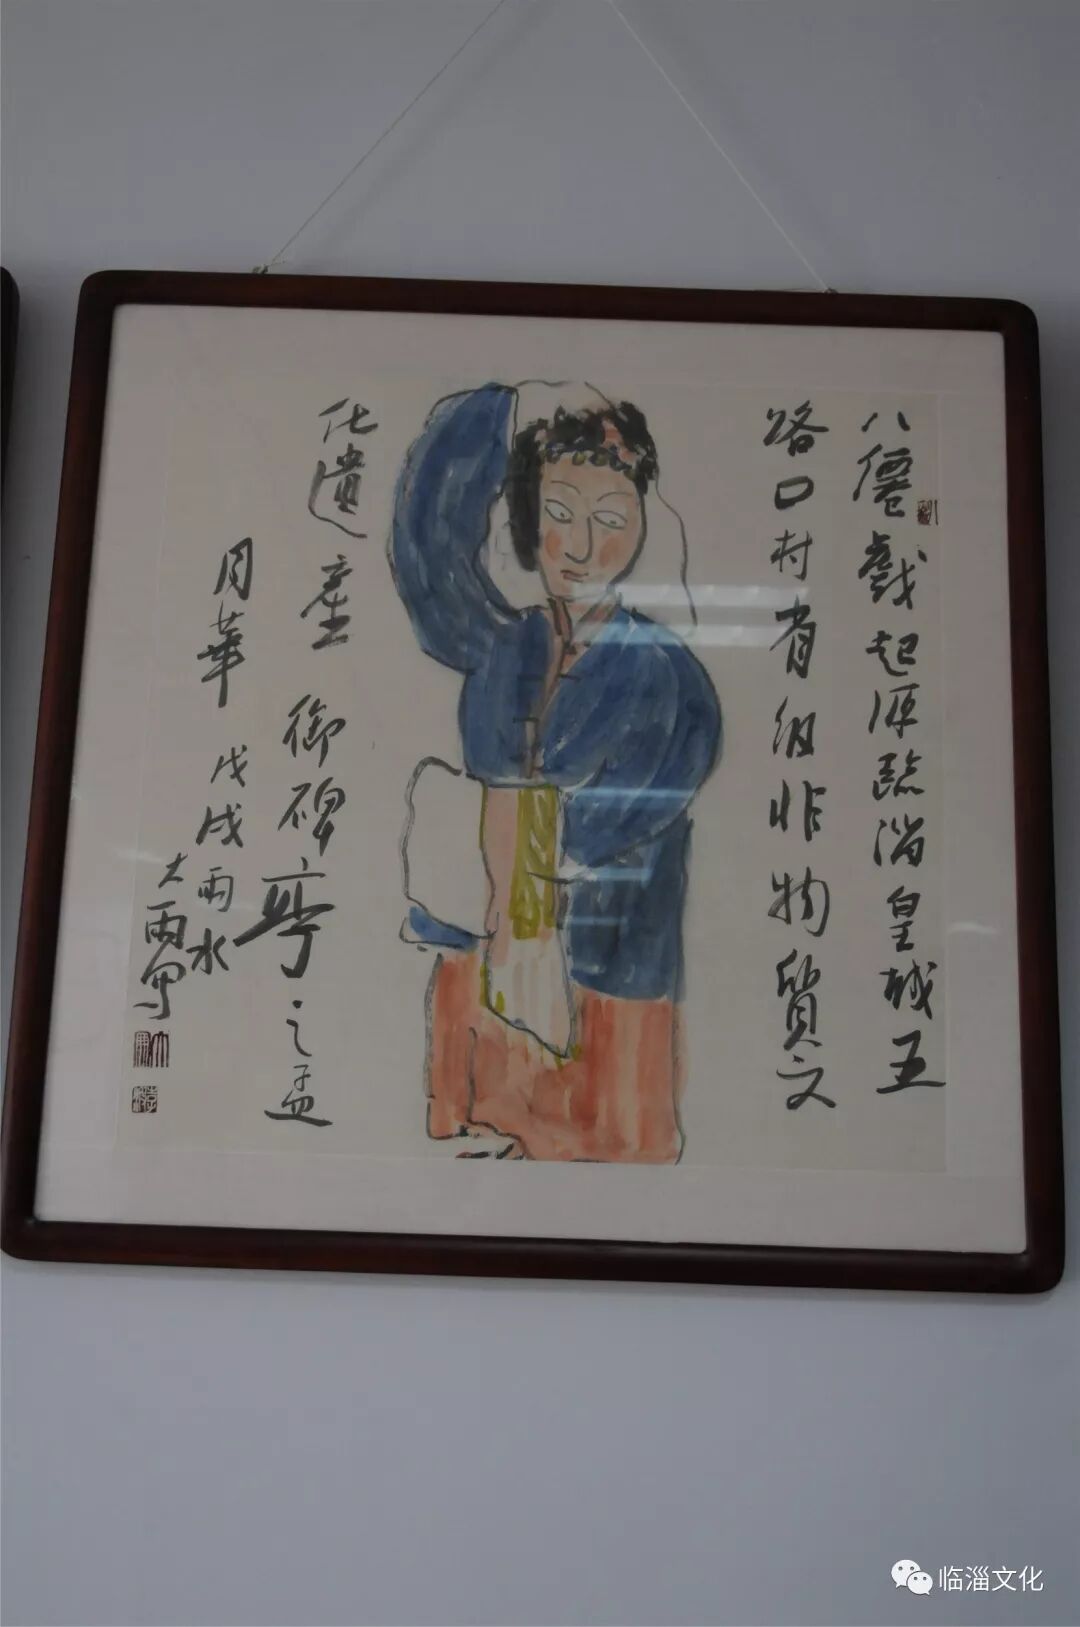 八僊戲起源臨淄皇城五
路口村省级非物質文
化遺產 御碑亭之孟
月華 戊戌雨水
大雨写
临淄文化